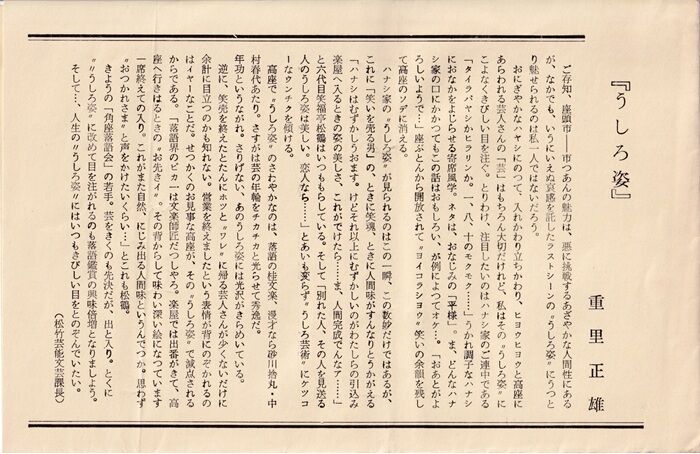 『うしろ姿』
重里正雄
ご存知、座頭市――市つあんの魅力は、悪に挑戦するあざやかな人間性にある
が、なかでも、いうにいえぬ哀感を託したラストシーンの〝うしろ姿〟にうつと
り魅せられるのは私一人ではないだろう。
おにぎやかなハヤシにのつて、入れかわり立ちかわり、ヒョウヒョウと高座に
あらわれる芸人さんの「芸」はもちろん大切だけれど、私はその〝うしろ姿〟に
こよなくきびしい目を注ぐ。とりわけ、注目したいのはハナシ家のご連中である
「タイラバヤシかヒラリンか。一、八、十のモクモク……」うかれ調子なハナシ
におなかをよじらせる寄席風学。ネタは、おなじみの「平様」。ま、どんなハナ
シ家の口にかかつてもこの話はおもしろい、が例によつてオケ…。「おあとがよ
ろしいようで……」座ぶとんから開放されて〝ヨイコラショウ〟笑いの余韻を残し
て高座のソデに消える。
ハナシ家の〝うしろ姿〟が見られるのはこの一瞬、この数妙だけではあるが、
これに「笑いを売る男」の、ときに笑魂、ときに人間味がすんなりとうかがえる
「ハナシはむずかしうおます。けどそれ以上にむずかしいのがわたしらの引込み
楽屋へ入るときの姿の美しさ、これがでけたら……ま、人間完成でんなァ……」
と六代目笑福亭松鶴はいつももらしている。そして「別れた人、その人を見送る
人のうしろ姿は美しい。恋人なら……」とあいも変らず〝うしろ芸術〟にケツコ
ーなウンチクを傾ける。
高座で〝うしろ姿〟のさわやかなのは、落語の桂文楽、漫才なら砂川捨丸・中
村春代あたり。さすがは芸の年輪をチカチカと光らせて秀逸だ。
年功というながれ。さりげない、あのうしろ姿には光沢がきらめいている。
逆に、笑売を終えたとたんにホツと〝ワレ〟に帰る芸人さんが少くないだけに
余計に目立つのかも知れない。営業を終えましたという表情が背にのぞかれるの
はイヤーなことだ。せつかくのお見事な高座が、その〝うしろ姿〟で減点される
からである。「落語界のピカ一は文楽師匠だつしやろ。楽屋では出番がきて、高
座へ行きはるときの〝お先きィ〟。その背からして味わい深い絵になつています
一席終えての入り。これがまた自然、にじみ出る人間味というんでつか。思わず
〝おつかれさま〟と声をかけたいくらい…」とこれも松鶴。
きようの「角座落語会」の若手。芸をきくのも先決だが、出と入り。とくに
〝うしろ姿〟に改めて目を注がれるのも落語鑑賞の興味倍増となりましよう。
そして…、人生の〝うしろ姿〟にはいつもきびしい目をとのぞんでいたい。
（松竹芸能文芸課長）